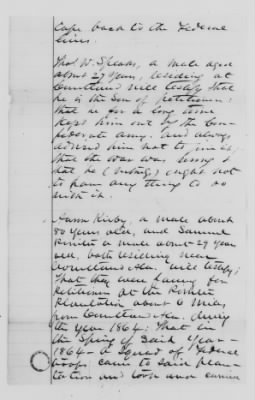 Cape back to the Federal
lines.
Thos W. Speaks, a male aged
about 29 years, residing at
Courtland will testify that
he is the Son of petitioner:
that he for a long time
kept him out of the Con-
federate army. and always
advised him not to join it,
that the war was wrong &
that he ( ) ought not
to have any thing to do
with it.
Aaron Kirby, a male about
50 years old, and Samuel
a male about 29 years
old, both residing near
Courtland Ala. will testify:
That they were living for
Petitioner at the
Plantation about 6 miles
from Courtland Ala. during
the year 1864: That in
the Spring of Said Year-
1864- a Squad of Federal
troops came to said plan-
tation and took and carried